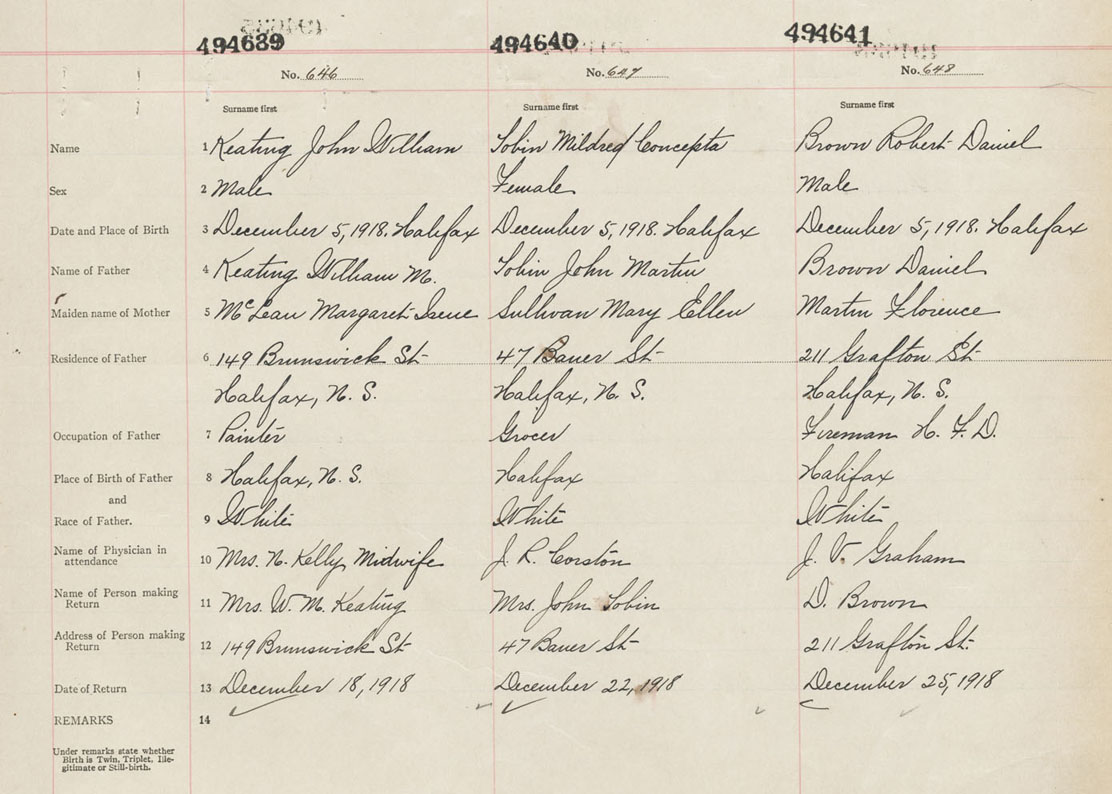 494639 494640 494641
No. 646 No. 647 No. 648
Surname first Surname first Surname first
Name 1 Keating John William Tobin Mildred Concepta Brown Robert Daniel
Sex 2 Male Female Male
Date and Place of Birth 3 December 5, 1918. Halifax December 5, 1918. Halifax December 5, 1918. Halifax
Name of Father 4 Keating William M. Tobin John Martin Brown Daniel
Maiden name of Mother 5 McLean Margaret Irene Sullivan Mary Ellen Martin Florence
Residence of Father 6 149 Brunswick St 47 Bauer St 211 Grafton St.
Halifax, N. S. Halifax, N. S. Halifax, N. S.
Occupation of Father 7 Painter Grocer Fireman H. F. D.
Place of Birth of Father 8 Halifax, N. S. Halifax Halifax
and
Race of Father. 9 White White White
Name of Physician in
attendance 10 Mrs. N. Kelly Midwife J. R. Corston J. V. Graham
Name of Person making
Return 11 Mrs. W. M. Keating Mrs. John Tobin D. Brown
Address of Person making
Return 12 149 Brunswick St 47 Bauer St 211 Grafton St.
Date of Return 13 December 18, 1918 December 22, 1918 December 25, 1918
REMARKS 14
Under remarks state whether
Birth is Twin, Triplet, Ille-
gitimate or Still-birth.